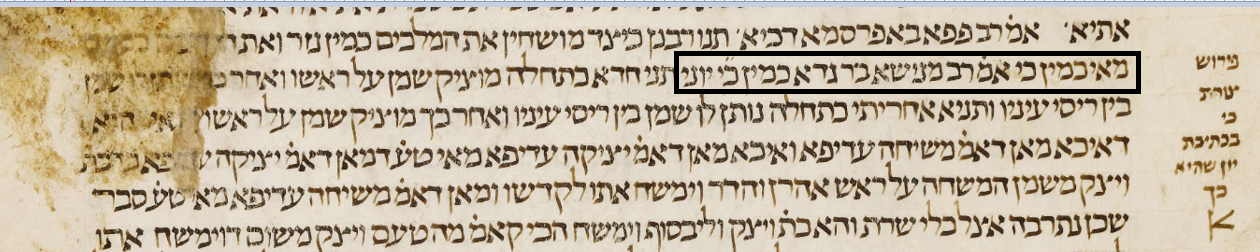 אתיא׳ אמ׳ רב פפא באפרסמא דכיא׳ תנו רבנן כיצד מושחין את המלכים כמין נזר ואת
מאי כמין כי אמ׳ רב מנישא בר גדא כמין כי יוני תני חדא בתחלה מוציק שמן על ראשו ואחר שמן
בין ריסי עיניו ותניא אחריתי בתחלה נותן לו שמן בין ריסי עיניו ואחר כך מוציק שמן על ראשו היא
דאיכא מאן דאמ׳ משיחה עדיפא ואיכא מאן דאמ׳ יציקה עדיפא מאי טע׳ דמאן דאמ׳ יציקה
ויצק משמן המשחה על ראש אהרן והדר וימשח אתו לקדשו ומאן דאמ׳ משיחה עדיפא מאי טע׳ סבר
שכן נתרבה אצל כלי שרת והא כת׳ ויצק ולבסוף וימשח הכי קאמ׳ מה טעם ויצק משום דוימשח אתו
פירוש
צורת
כי
בכתיבת
יון שהיא
כך